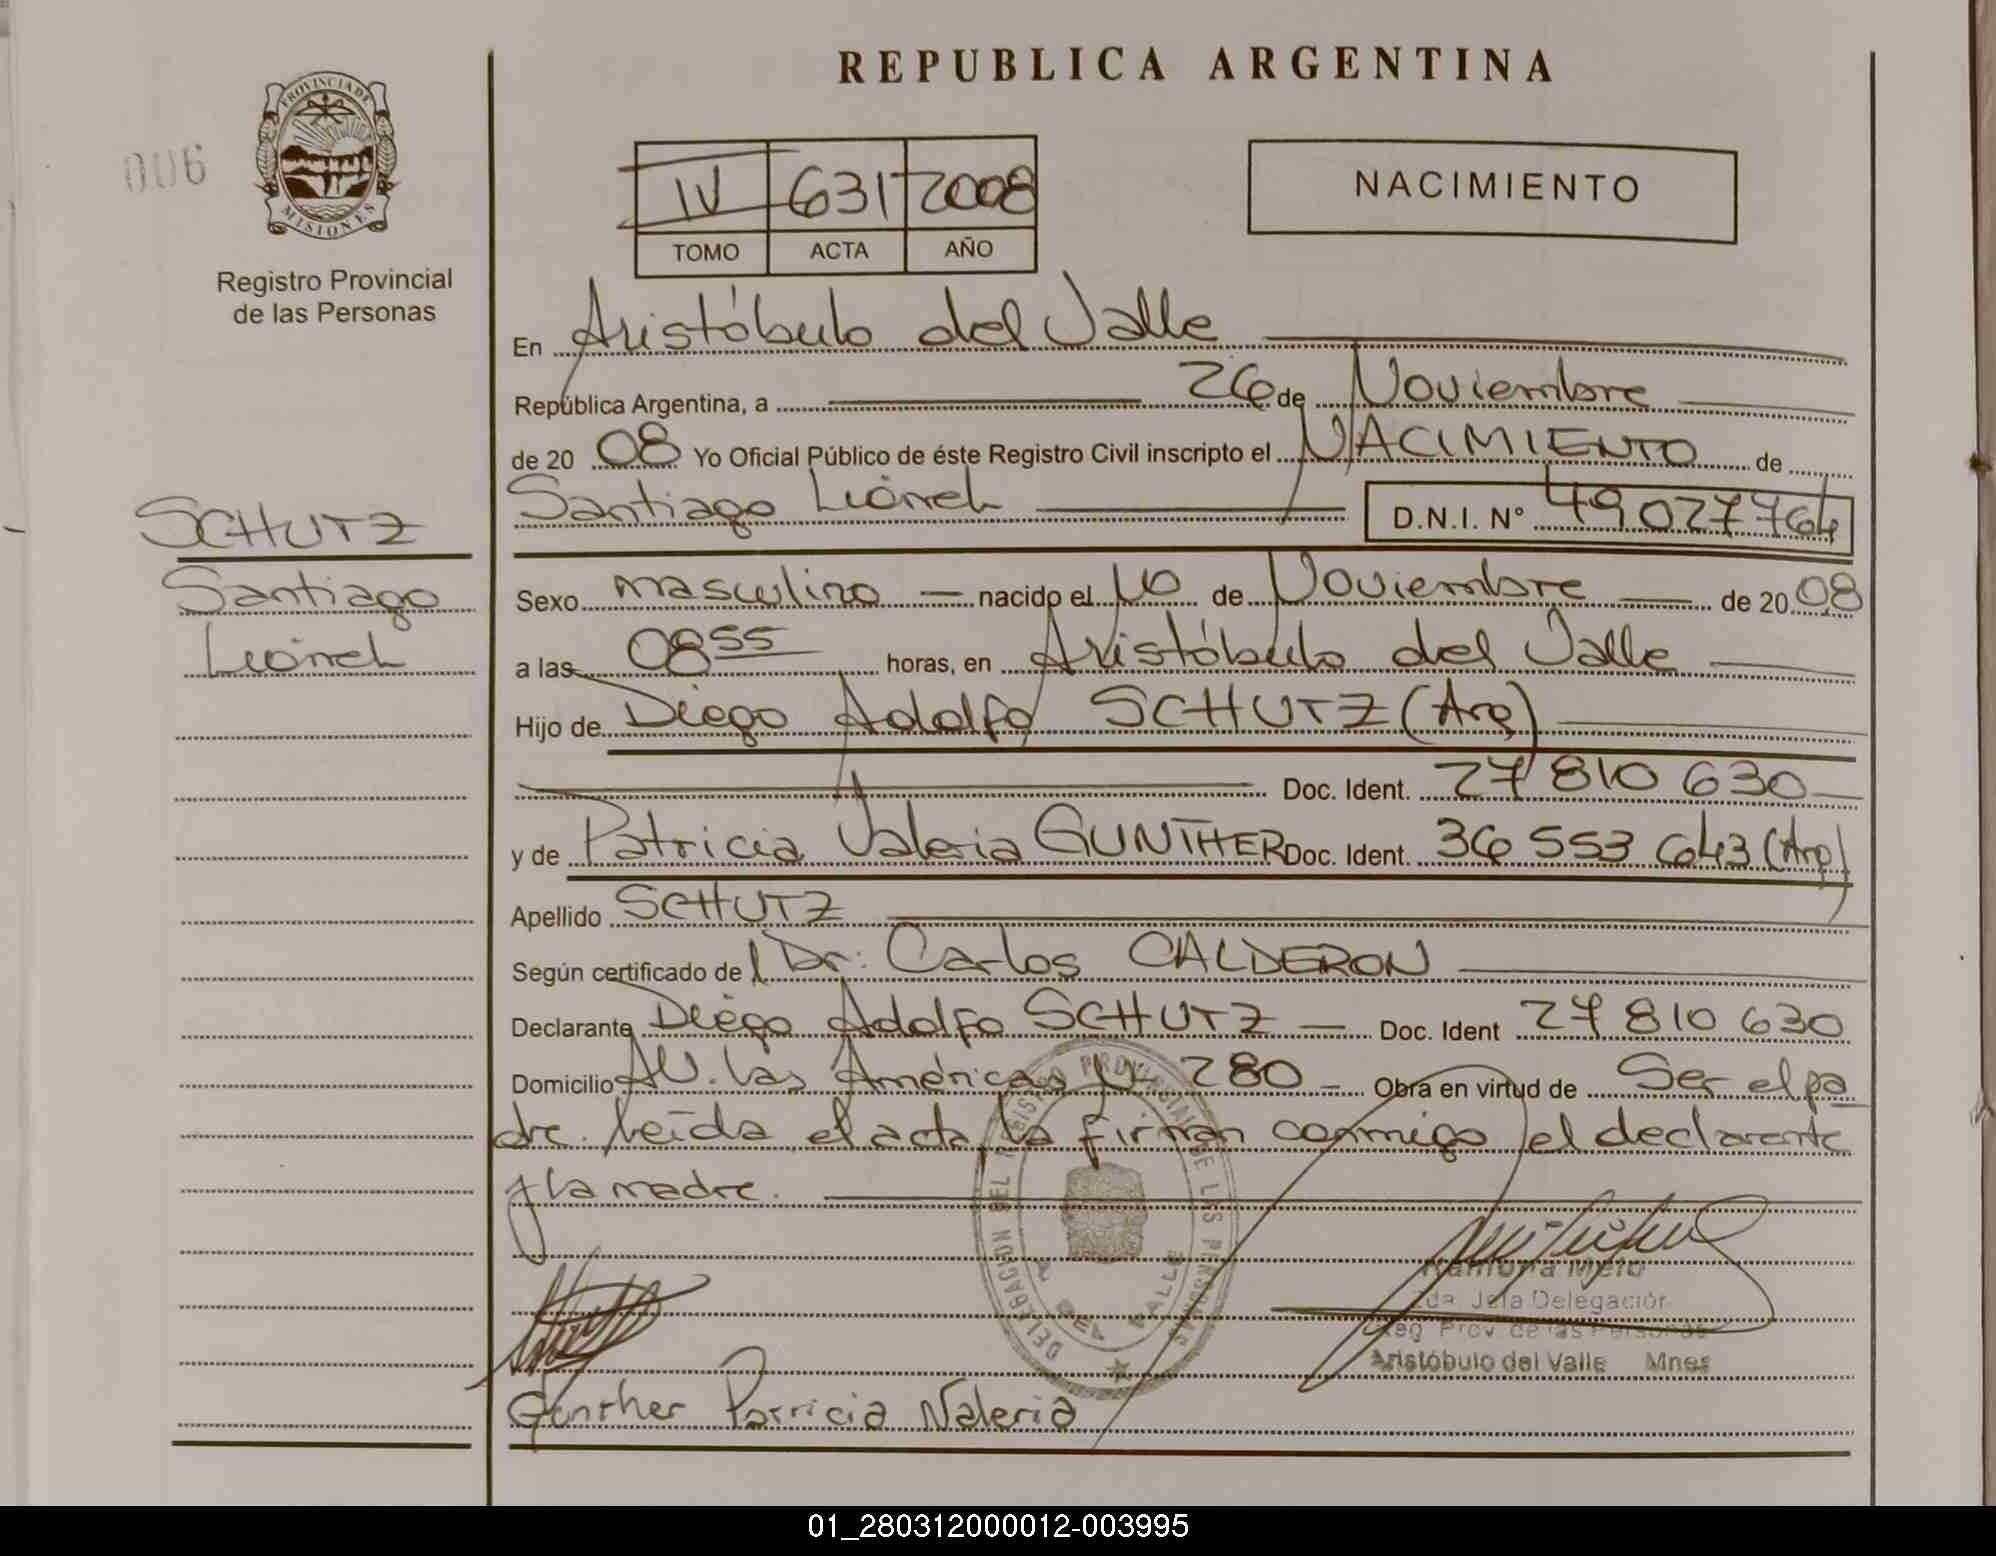 REPUBLICA ARGENTINA
006
PROVINCIA DE
MISIONES
Registro Provincial
de las Personas
IV 631 2008
TOMO ACTA AÑO
NACIMIENTO
En Aristóbulo del Valle
República Argentina, a 26 de Noviembre
de 20 08 Yo Oficial Público de éste Registro Civil inscripto el NACIMIENTO de
Santiago Liónel D.N.I. N° 49027764
SCHUTZ
Santiago
Liónel
Sexo masculino nacido el 10 de Noviembre de 20 08
a las 08 55 horas, en Aristóbulo del Valle
Hijo de Diego Adolfo SCHUTZ (Arg)
Doc. Ident. 27 810 630
y de Patricia Valeria GUNTHER Doc. Ident. 36 553 643 (Arg)
Apellido SCHUTZ
Según certificado del Dr: Carlos CALDERON
Declarante Diego Adolfo SCHUTZ Doc. Ident 27 810 630
Domicilio AV. las Américas N° 280 Obra en virtud de Ser el pa
dre. leída el acta, la firman conmigo el declarante
y la madre.
DELEGACION DEL REGISTRO PROVINCIAL DE LAS PERSONAS
VALLE
Ramona Melo
2da Jefa Delegación
Reg Prov. de las Personas
Aristóbulo del Valle Mnes
Günther Patricia Valeria
01_280312000012-003995